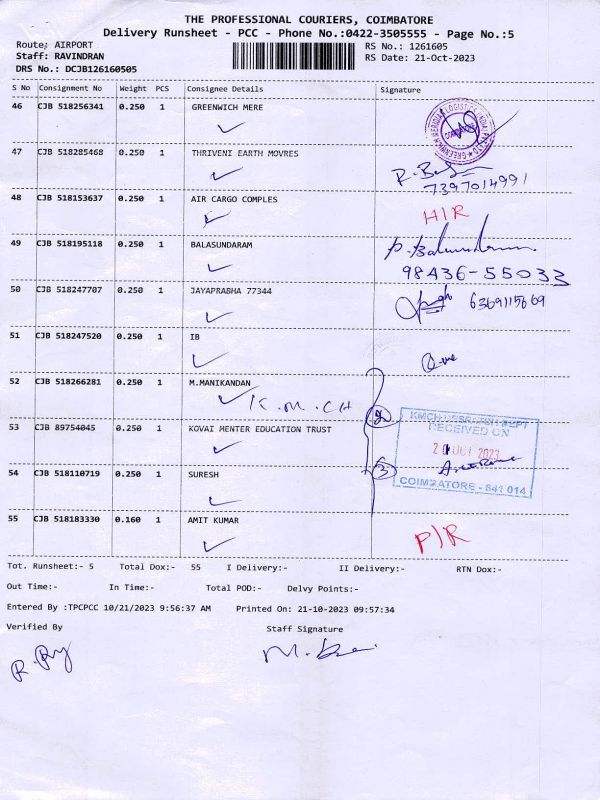 THE PROFESSIONAL COURIERS, COIMBATORE
Delivery Runsheet - PCC - Phone No.:0422-3505555 - Page No.:5
Route: AIRPORT RS No.: 1261605
Staff: RAVINDRAN RS Date: 21-Oct-2023
DRS No.: DCJB126160505
S No Consignment No Weight PCS Consignee Details Signature
46 CJB 518256341 0.250 1 GREENWICH MERE
47 CJB 518285468 0.250 1 THRIVENI EARTH MOVRES
7397014991
48 CJB 518153637 0.250 1 AIR CARGO COMPLES
H/R
49 CJB 518195118 0.250 1 BALASUNDARAM
98436-55033
50 CJB 518247707 0.250 1 JAYAPRABHA 77344
6369115669
51 CJB 518247520 0.250 1 IB
52 CJB 518266281 0.250 1 M.MANIKANDAN
K.M.CH
53 CJB 89754045 0.250 1 KOVAI MENTER EDUCATION TRUST
RECEIVED ON
54 CJB 518110719 0.250 1 SURESH
3
COIMBATORE - 641 014
55 CJB 518183330 0.160 1 AMIT KUMAR
P/R
Tot. Runsheet:- 5 Total Dox:- 55 I Delivery:- II Delivery:- RTN Dox:-
Out Time:- In Time:- Total POD:- Delvy Points:-
Entered By :TPCPCC 10/21/2023 9:56:37 AM Printed On: 21-10-2023 09:57:34
Verified By Staff Signature